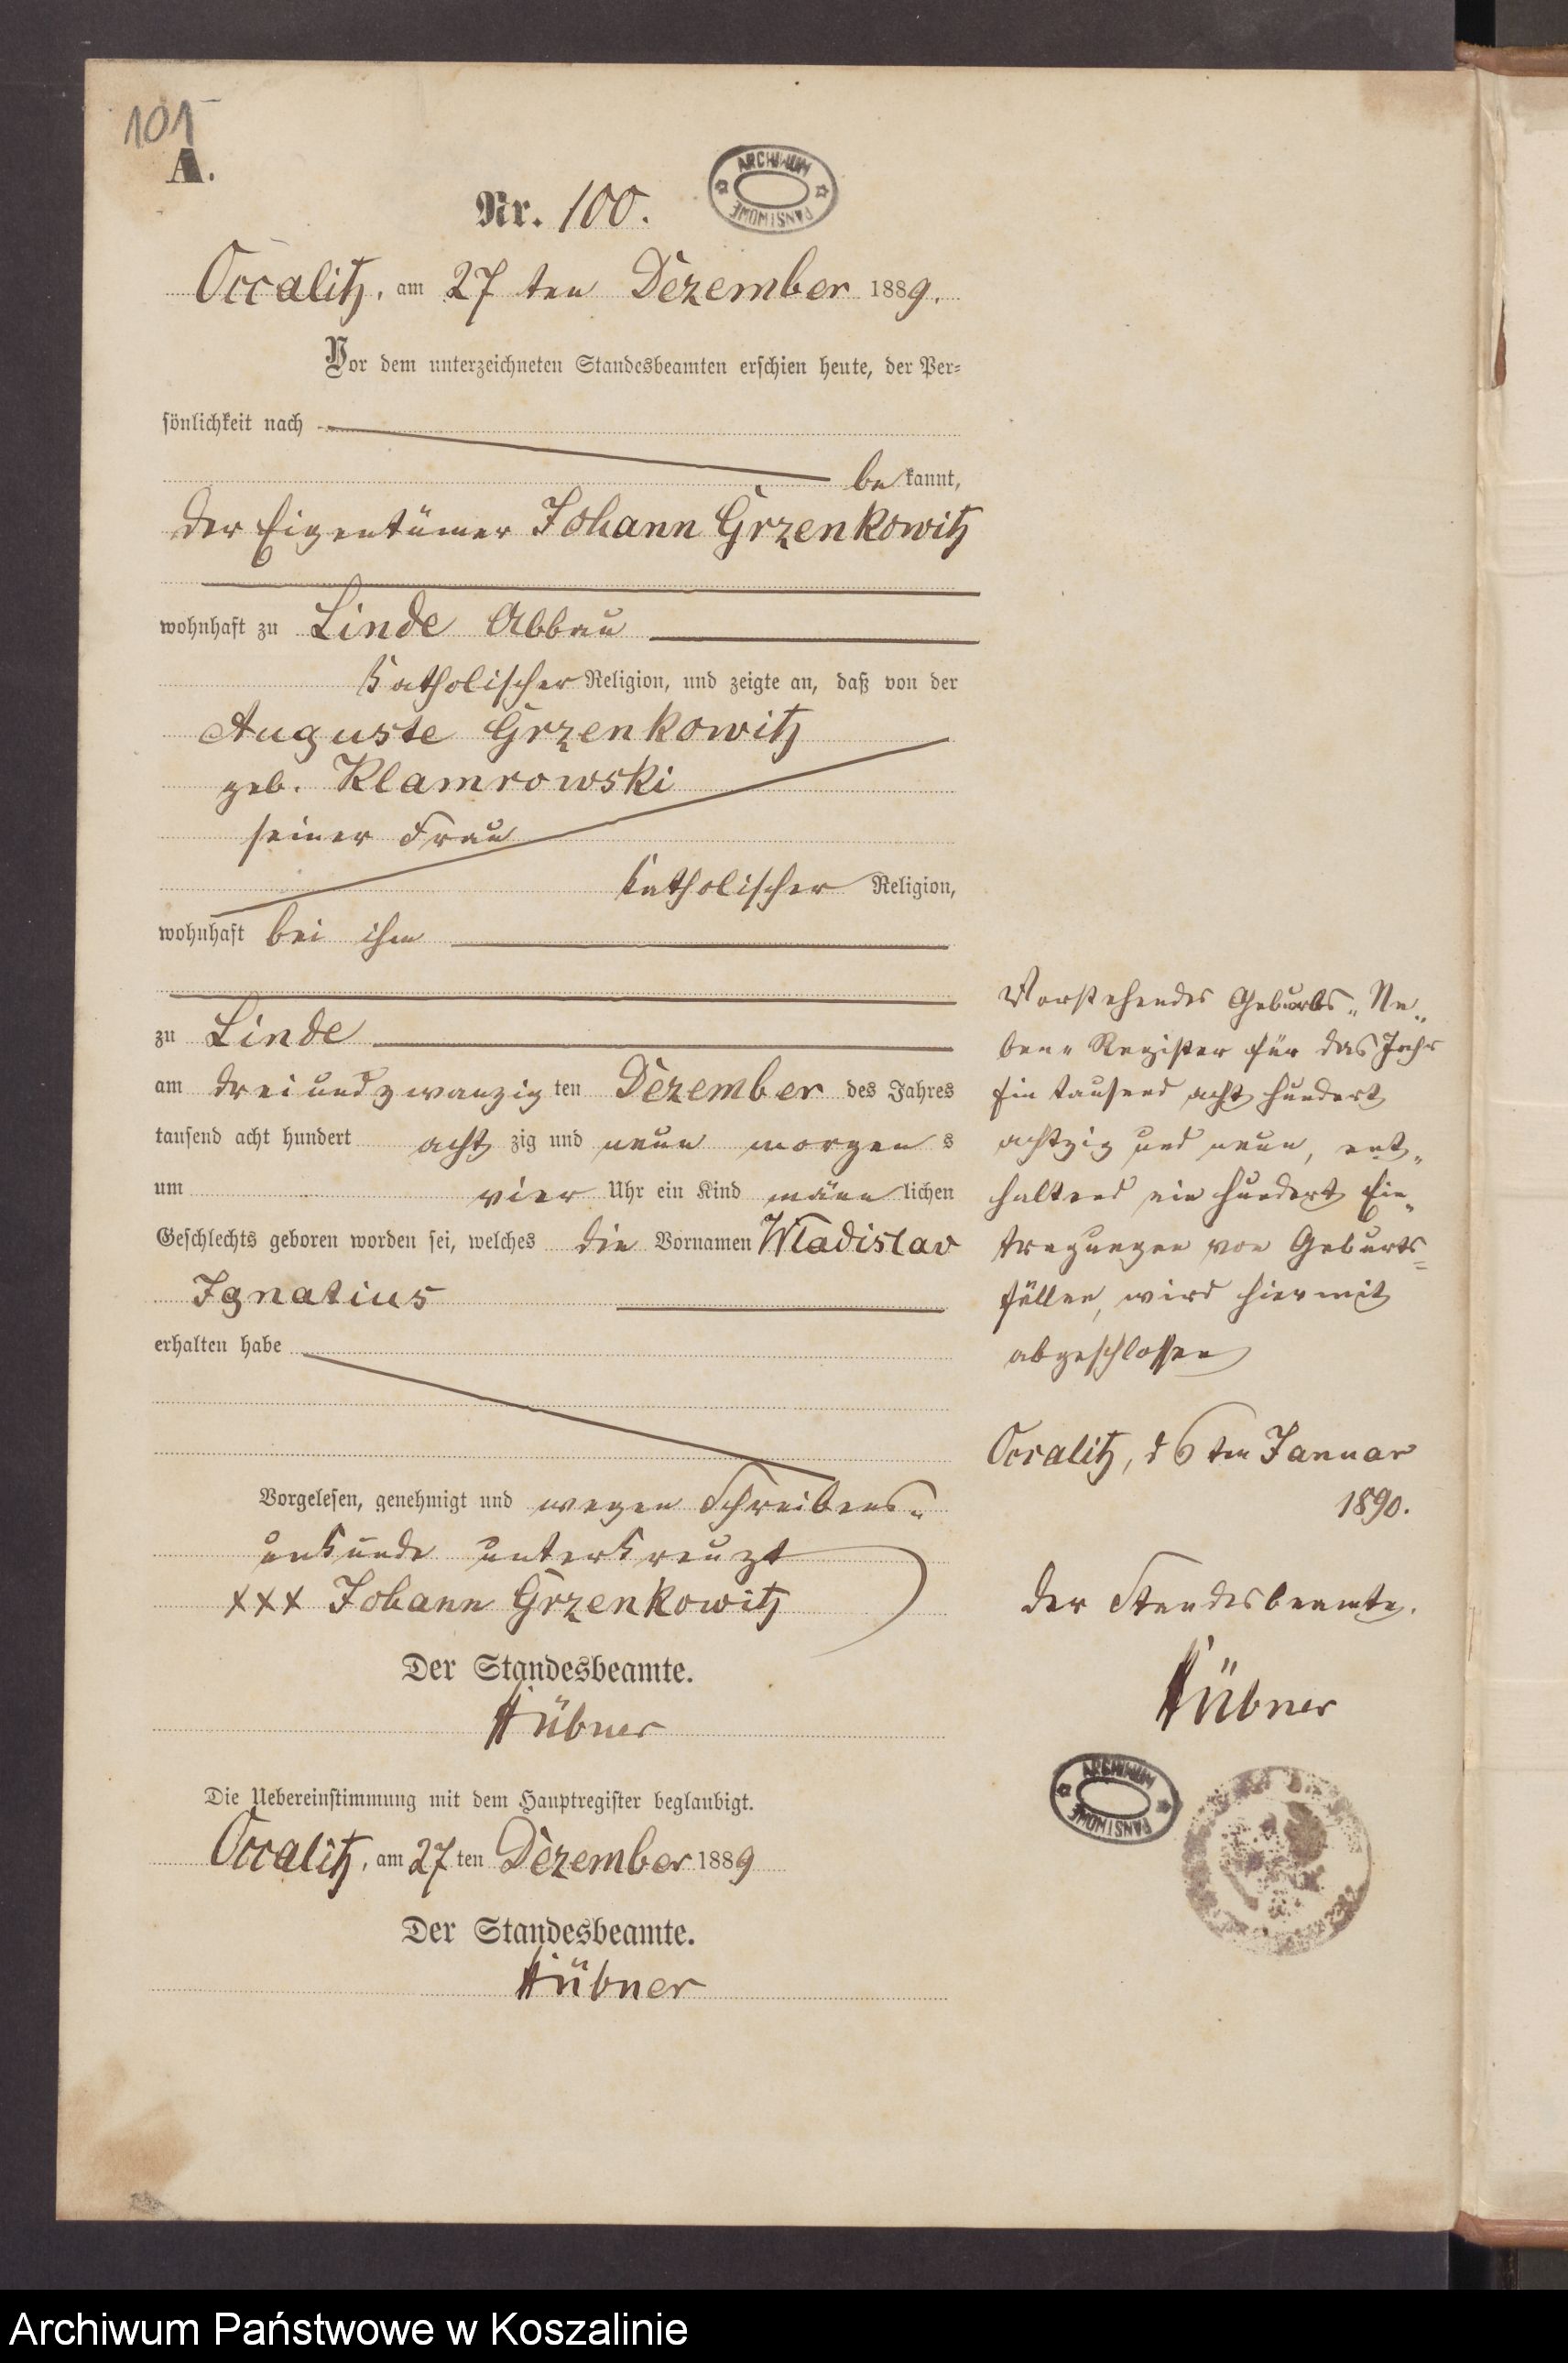 101
A.
Nr. 100.
ARCHIWUM PAŃSTWOWE
Occalitz, am 27 ten Dezember 1889.
Vor dem unterzeichneten Standesbeamten erschien heute, der Per-
sönlichkeit nach
be kannt,
der Eigentümer Johann Grzenkowitz
wohnhaft zu Linde Abbau
katholischer Religion, und zeigte an, daß von der
Auguste Grzenkowitz
geb. Klamrowski
seiner Frau
katholischer Religion,
wohnhaft bei ihm
zu Linde
am dreiundzwanzig ten Dezember des Jahres
tausend acht hundert acht zig und neun morgen s
um vier Uhr ein Kind männ lichen
Geschlechts geboren worden sei, welches die Vornamen Wladislav
Ignatius
erhalten habe
Vorgelesen, genehmigt und wegen Schreibens-
unkunde unterkreuzt
xxx Johann Grzenkowitz
Der Standesbeamte.
Hübner
Die Uebereinstimmung mit dem Hauptregister beglaubigt.
Occalitz, am 27 ten Dezember 1889
Der Standesbeamte.
Hübner
Vorstehendes Geburts-Ne-
ben-Register für das Jahr
Ein tausend acht hundert
achtzig und neun, ent-
haltend ein hundert Ein-
tragungen von Geburts-
fällen, wird hiermit
abgeschlossen
Occalitz, d 6ten Januar
1890.
Der Standesbeamte.
Hübner
ARCHIWUM PAŃSTWOWE
Archiwum Państwowe w Koszalinie